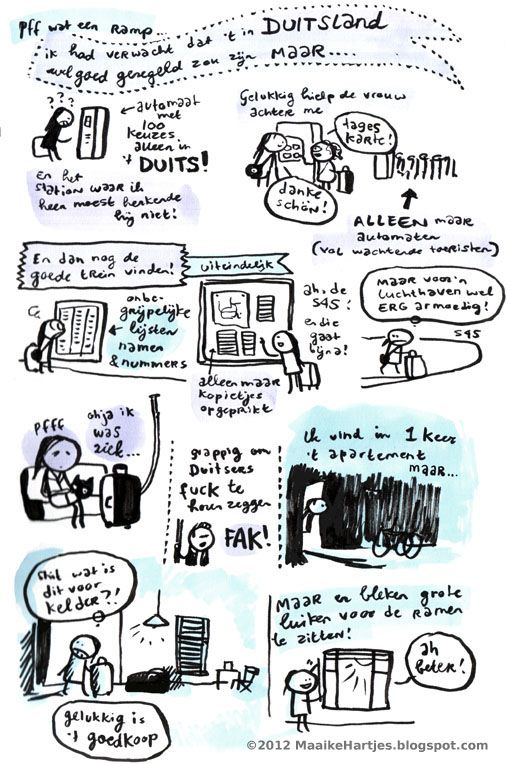 Pff wat een Ramp...
ik had verwacht dat 't in DUITSLand
wel goed geregeld zou zijn MAAR....
???
automaat
met
100
keuzes
alleen in
't DUITS!
En het
station waar ik
heen moest herkende
hij niet!
Gelukkig hielp de vrouw
achter me
tages
karte!
danke
schön!
ALLEEN maar
automaten
(vol wachtende toeristen)
En dan nog de
goede trein vinden!
onbe-
grijpelijke
lijsten
namen
& nummers
uiteindelijk
ah, de
S45!
en die
gaat
bijna!
alleen maar
kopietjes
opgeprikt
MAAR voor 'n
luchthaven wel
ERG armoedig!
S45
PFFF
ohja ik
was
ziek...
grappig om
Duitsers
fuck te
horen zeggen
FAK!
Ik vind in 1 keer
't apartement
maar...
wat is
dit voor
kelder?!
gelukkig is
't goedkoop
MAAR er bleken grote
luiken voor de ramen
te zitten!
ah
beter!
©2012 MaaikeHartjes.blogspot.com